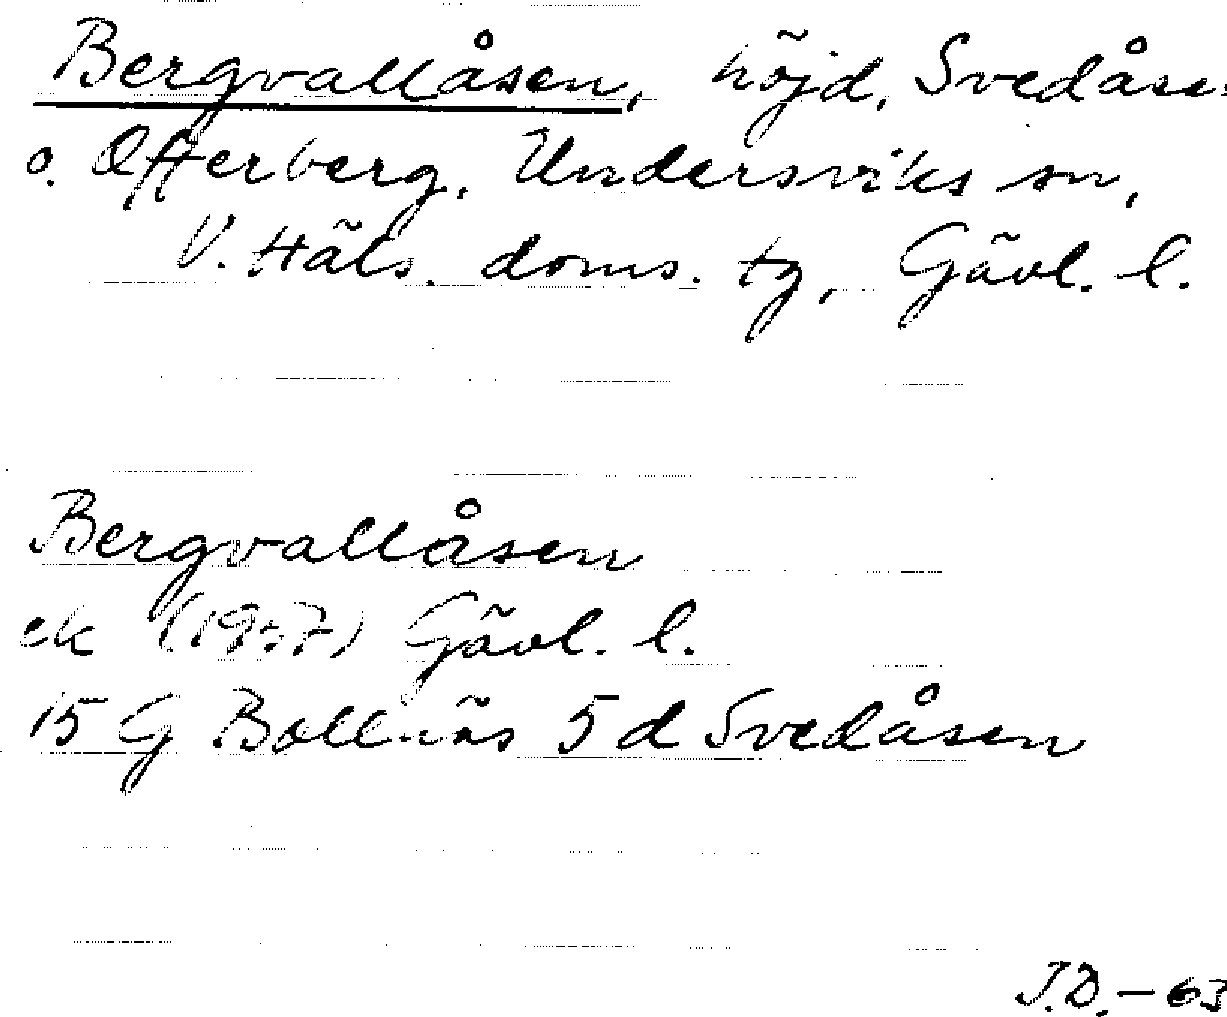 Bergvallåsen, höjd, Svedåsen
o. Ofterberg, Undersviks sn,
V. Häls. doms. tg, Gävl. l.
Bergvallåsen
ek (1957) Gävl. l.
15 G Bollnäs 5 d Svedåsen
J.D. - 63